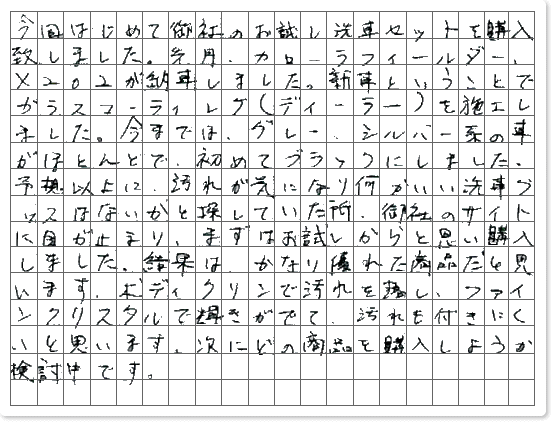 今回はじめて御社のお試し洗車セットを購入
致しました。先月、カローラフィールダー、
X202が納車しました。新車ということで
ガラスコーティング(ディーラー)を施工し
ました。今までは、グレー、シルバー系の車
がほとんどで、初めてブラックにしました。
予想以上に、汚れが気になり何かいい洗車グ
ッズはないかと探していた所、御社のサイト
に目が止まり、まずはお試しからと思い購入
しました。結果は、かなり優れた商品だと思
います。ボディクリンで汚れを落し、ファイ
ンクリスタルで輝きがでて、汚れを付きにく
いと思います。次にどの商品を購入しようか
検討中です。